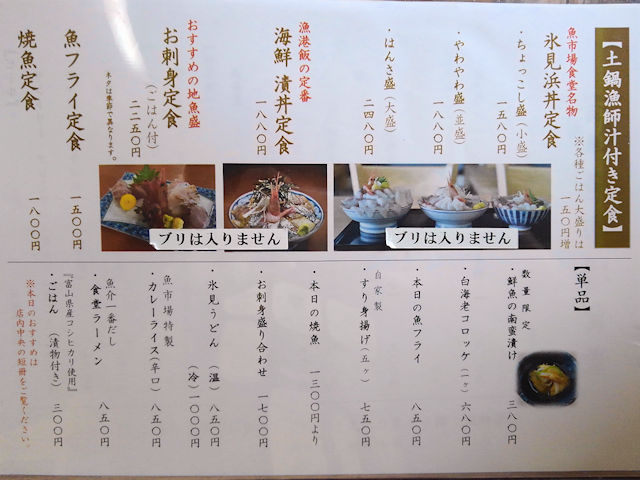 【土鍋漁師汁付き定食】
※各種ごはん大盛りは
一五〇円増
魚市場食堂名物
氷見浜丼定食
・ちょっこし盛(小盛)
一五八〇円
・やわやわ盛(並盛)
一八八〇円
・はんさ盛(大盛)
二四八〇円
漁港飯の定番
海鮮漬丼定食
一八八〇円
おすすめの地魚盛
お刺身定食
(ごはん付)
二二五〇円
ネタは季節で異なります。
魚フライ定食
一五〇〇円
焼魚定食
一八〇〇円
ブリは入りません
ブリは入りません
【単品】
数量限定
・鮮魚の南蛮漬け
三八〇円
・白海老コロッケ(一ヶ)
六八〇円
・本日の魚フライ
八五〇円
自家製
・すり身揚げ(五ヶ)
七五〇円
・本日の焼魚
一三〇〇円より
・お刺身盛り合わせ
一七〇〇円
・氷見うどん(温)八五〇円
(冷)一〇〇〇円
魚市場特製
・カレーライス(辛口)
八五〇円
魚介一番だし
・食堂ラーメン
八五〇円
『富山県産コシヒカリ使用』
・ごはん(漬物付き)
三〇〇円
※本日のおすすめは
店内中央の短冊をご覧ください。